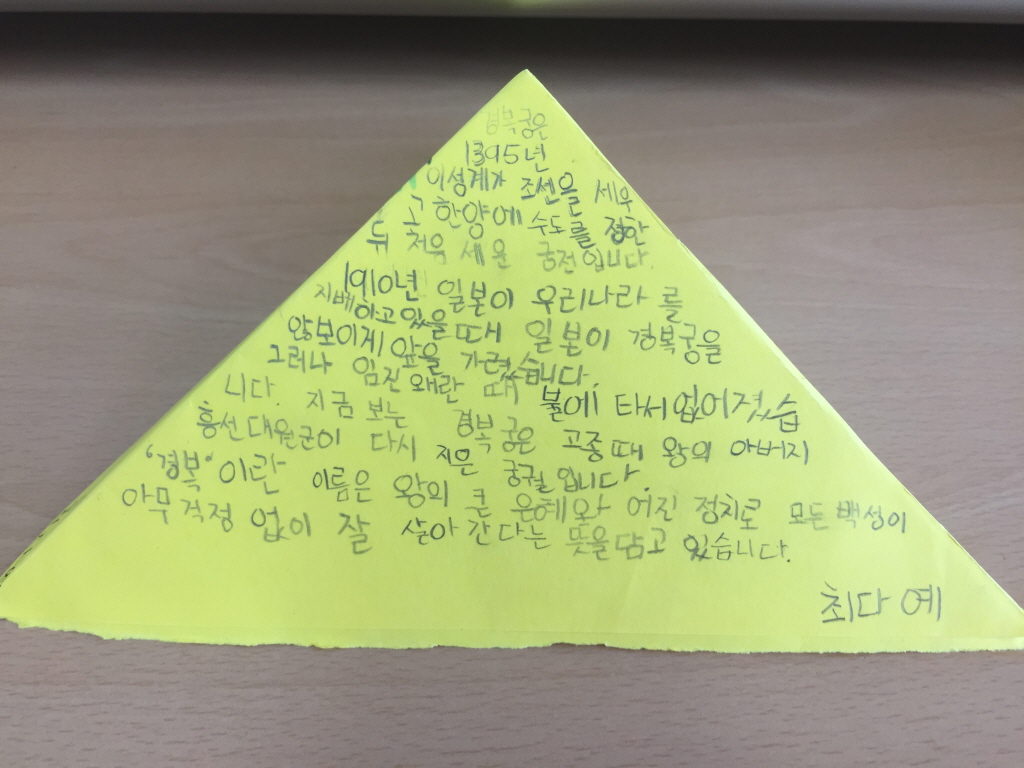 경복궁은
1395년
이성계가 조선을 세우
고 한양에 수도를 정한
뒤 처음 세운 궁전입니다.
1910년 일본이 우리나라를
지베하고 있을 때 일본이 경복궁을
않보이게 앞을 가렸습니다.
그러나 임진왜란 때 불에 타서 없어졌습
니다. 지금 보는 경복궁은 고종 때 왕의 아버지
흥선대원군이 다시 지은 궁궐입니다.
"경복"이란 이름은 왕의 큰 은혜와 어진 정치로 모든 백성이
아무 걱정 없이 잘 살아 간다는 뜻을 담고 있습니다.
최다예